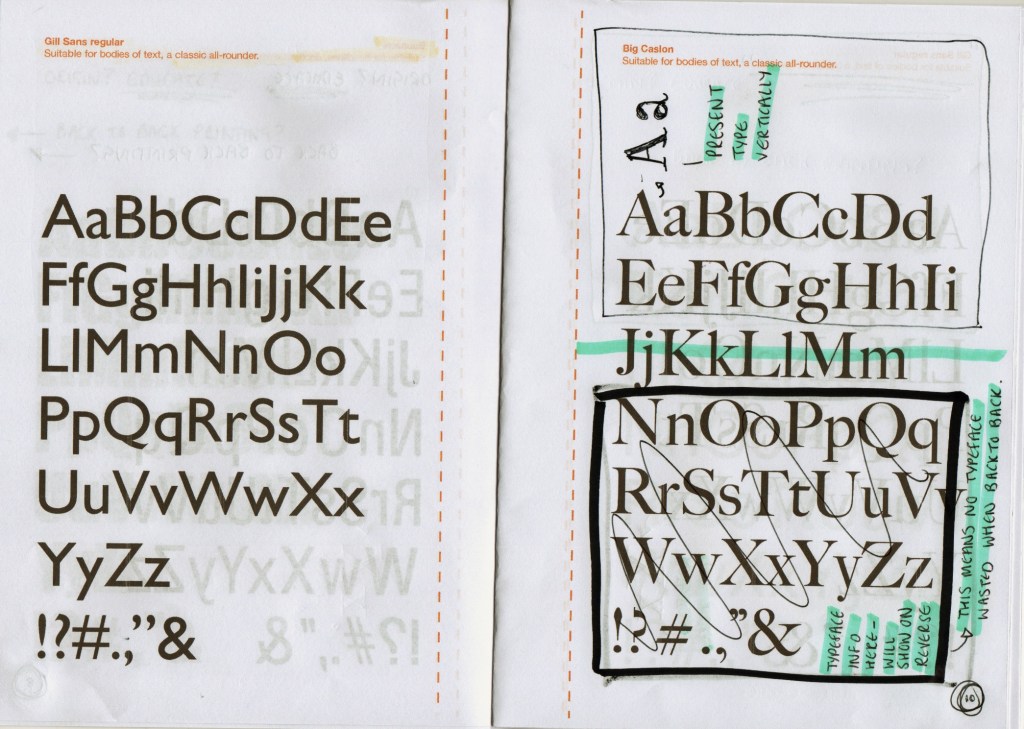 Gill Sans regular
Suitable for bodies of text, a classic all-rounder.
AaBbCcDdEe
FfGgHhIiJjKk
LlMmNnOo
PpQqRrSsTt
UuVvWwXx
YyZz
!?#.,;”&
Big Caslon
Suitable for bodies of text, a classic all-rounder.
Aa
PRESENT
TYPE
VERTICALLY
AaBbCcDd
EeFfGgHhIi
JjKkLlMm
NnOoPpQq
RrSsTtUuVv
WwXxYyZz
!?# .,”&
TYPEFACE
INFO
HERE –
WILL
SHOW ON
REVERSE
THIS MEANS NO TYPEFACE
WASTED WHEN BACK TO BACK.
10